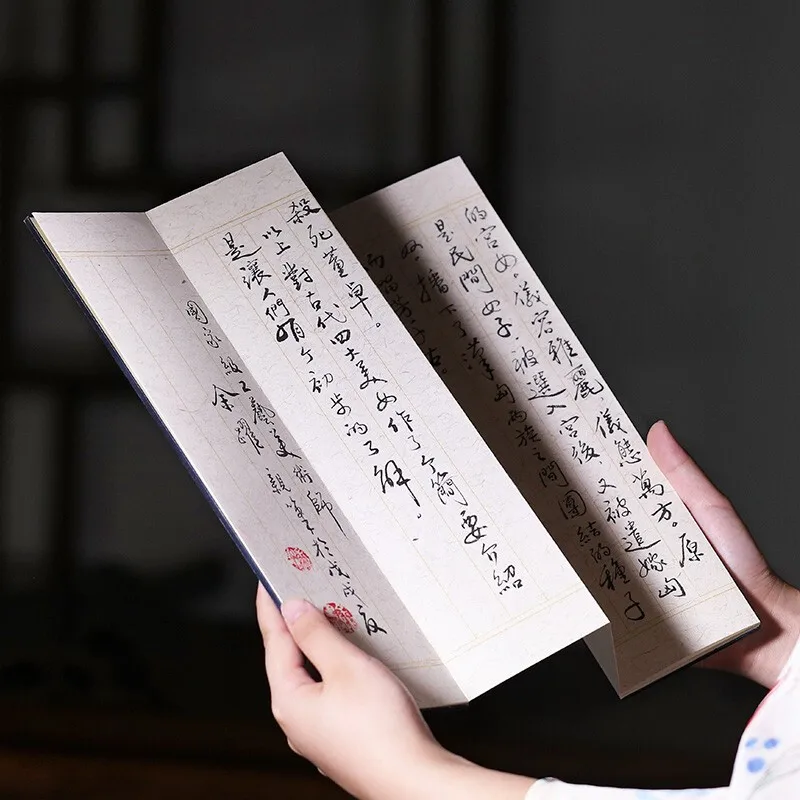 的宮女。儀容雅麗，儀態萬方。原
是民間女子，被選入宮後，又被遣嫁匈
奴，播下了漢匈两族之間團結的種子
而留芳千古。
殺死董卓。
以上對古代四大美女作了个簡要介紹
是讓人們有个初步的了解。
國家級工藝美術師
余 親筆 於戊戌夏